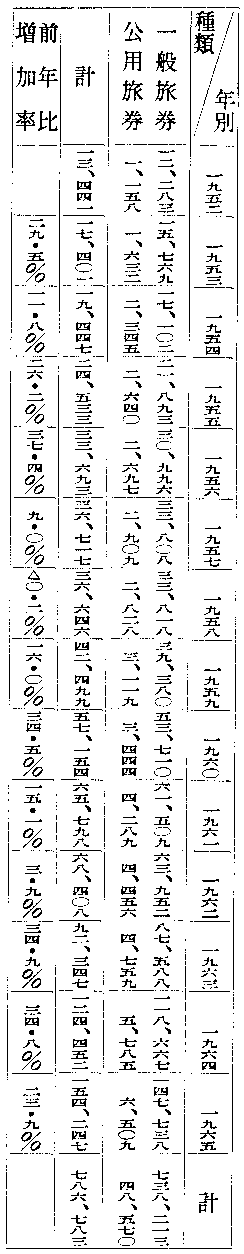 種類 年別 一九五二 一九五三 一九五四 一九五五 一九五六 一九五七 一九五八 一九五九 一九六〇 一九六一 一九六二 一九六三 一九六四 一九六五 計
一般旅券 一二、二八三 一五、七六九 一七、一〇二 二一、八九三 三〇、九九六 三三、八〇八 三三、八一八 三九、三八〇 五三、七一〇 六一、五〇九 六三、九五二 八七、五八八 一一八、六六七 一四七、七三八 七三八、二一三
公用旅券 一、一五八 一、六三二 二、三四五 二、六四〇 二、六九七 二、九〇九 二、八二八 三、一一九 三、四四四 四、二八九 四、四五六 四、七五九 五、七八五 六、五〇九 四八、五七〇
計 一三、四四一 一七、四〇一 一九、四四七 二四、五三三 三三、六九三 三六、七一七 三六、六四六 四二、四九九 五七、一五四 六五、七九八 六八、四〇八 九二、三四七 一二四、四五二 一五四、二四七 七八六、七八三
前年比増加率 二九・五% 一一・八% 二六・二% 三七・四% 九・〇% △〇・二% 一六・〇% 三四・五% 一五・一% 三・九% 三四・九% 三四・八% 二三・九%